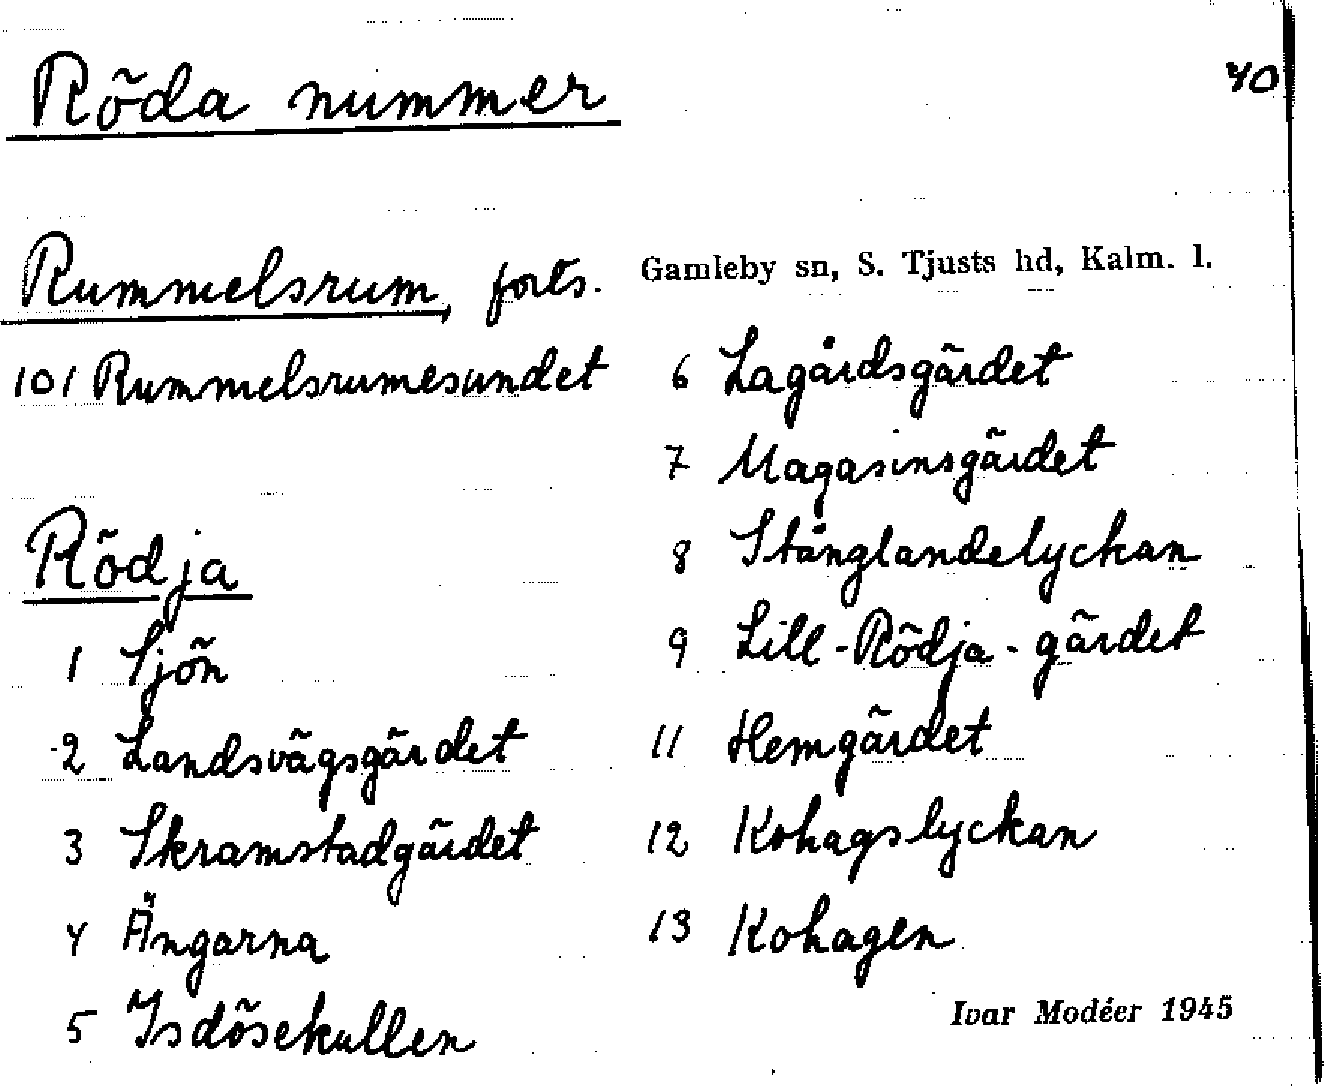 40
Röda nummer
Rummelsrum, forts.
Gamleby sn, S. Tjusts hd, Kalm. l.
101 Rummelsrumesundet
Rödja
1 Sjön
2 Landsvägsgärdet
3 Skramstadgärdet
4 Ängarna
5 Isdösekullen
6 Lagårdsgärdet
7 Magasinsgärdet
8 Stånglandelyckan
9 Lill-Rödja-gärdet
11 Hemgärdet
12 Kohagslyckan
13 Kohagen
Ivar Modéer 1945